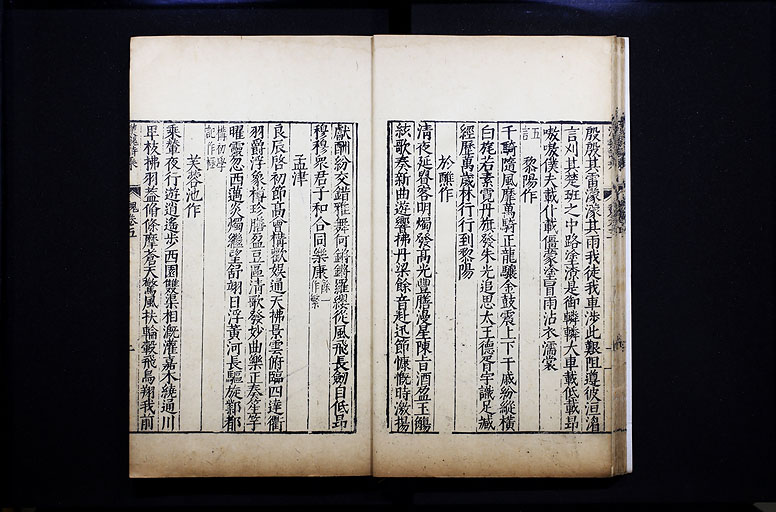 殷殷其雷濛濛其雨我徒我車涉此艱阻遵彼洹湄
言刈其楚班之中路塗潦是御轔轔大車載低載昂
嗷嗷僕夫載仆載僵蒙塗冒雨沾衣濡裳
黎陽作
五言
千騎隨風靡萬騎正龍驤金鼓震上下干戚紛縱橫
白旄若素霓丹旗發朱光追思太王德胥宇識足臧
經歷萬歲林行行到黎陽
於譙作
清夜延賓客明燭發高光豐膳漫星陳旨酒盈玉觴
絃歌奏新曲遊響拂丹梁餘音赴迅節慷慨時激揚
獻酬紛交錯雅舞何鏘鏘羅纓從風飛長劍自低昂
穆穆衆君子和合同樂康
孟津
良辰啓初節高會構歡娛通天拂景雲俯臨四達衢
羽爵浮象樽珍膳盈豆區清歌發妙曲樂正奏笙竽
曜靈忽西邁炎燭繼望舒翊日浮黃河長驅旋鄴都
芙蓉池作
乘輦夜行遊逍遙步西園雙渠相溉灌嘉木繞通川
卑枝拂羽蓋脩條摩蒼天驚風扶輪轂飛鳥翔我前